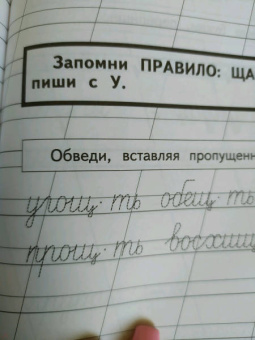 Запомни ПРАВИЛО: ЩА
пиши с У.
Обведи, вставляя пропущенн
угощ.ть обещ.ть
прощ.ть восхищ